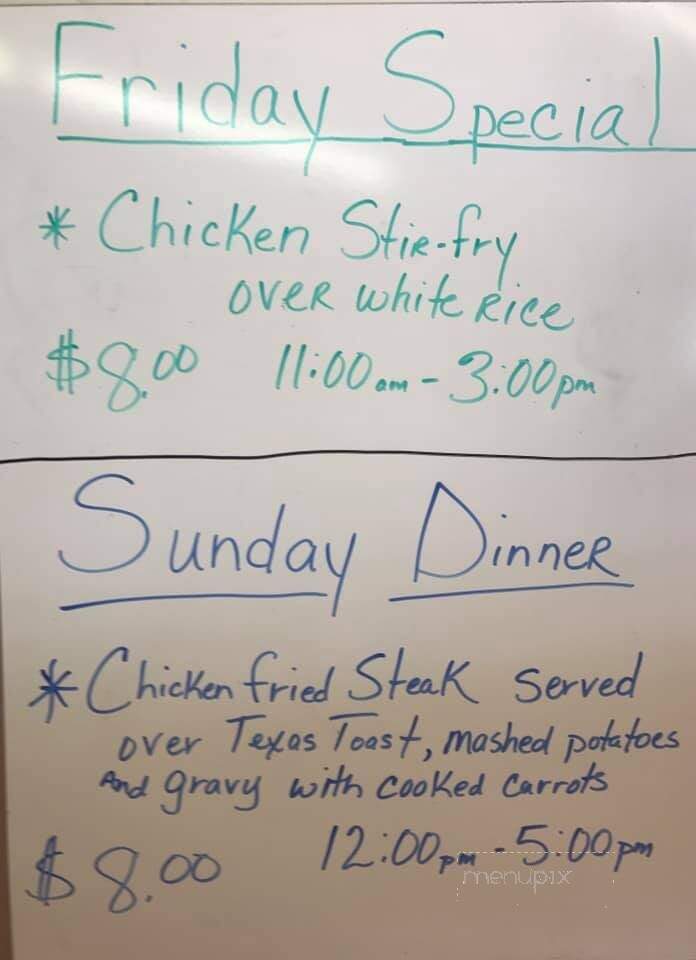 Friday Special
* Chicken Stir-fry
over white Rice
$8.00 11:00am - 3:00pm
Sunday Dinner
* Chicken fried Steak Served
over Texas Toast, mashed potatoes
And gravy with cooked carrots
$8.00 12:00pm - 5:00pm
menupix